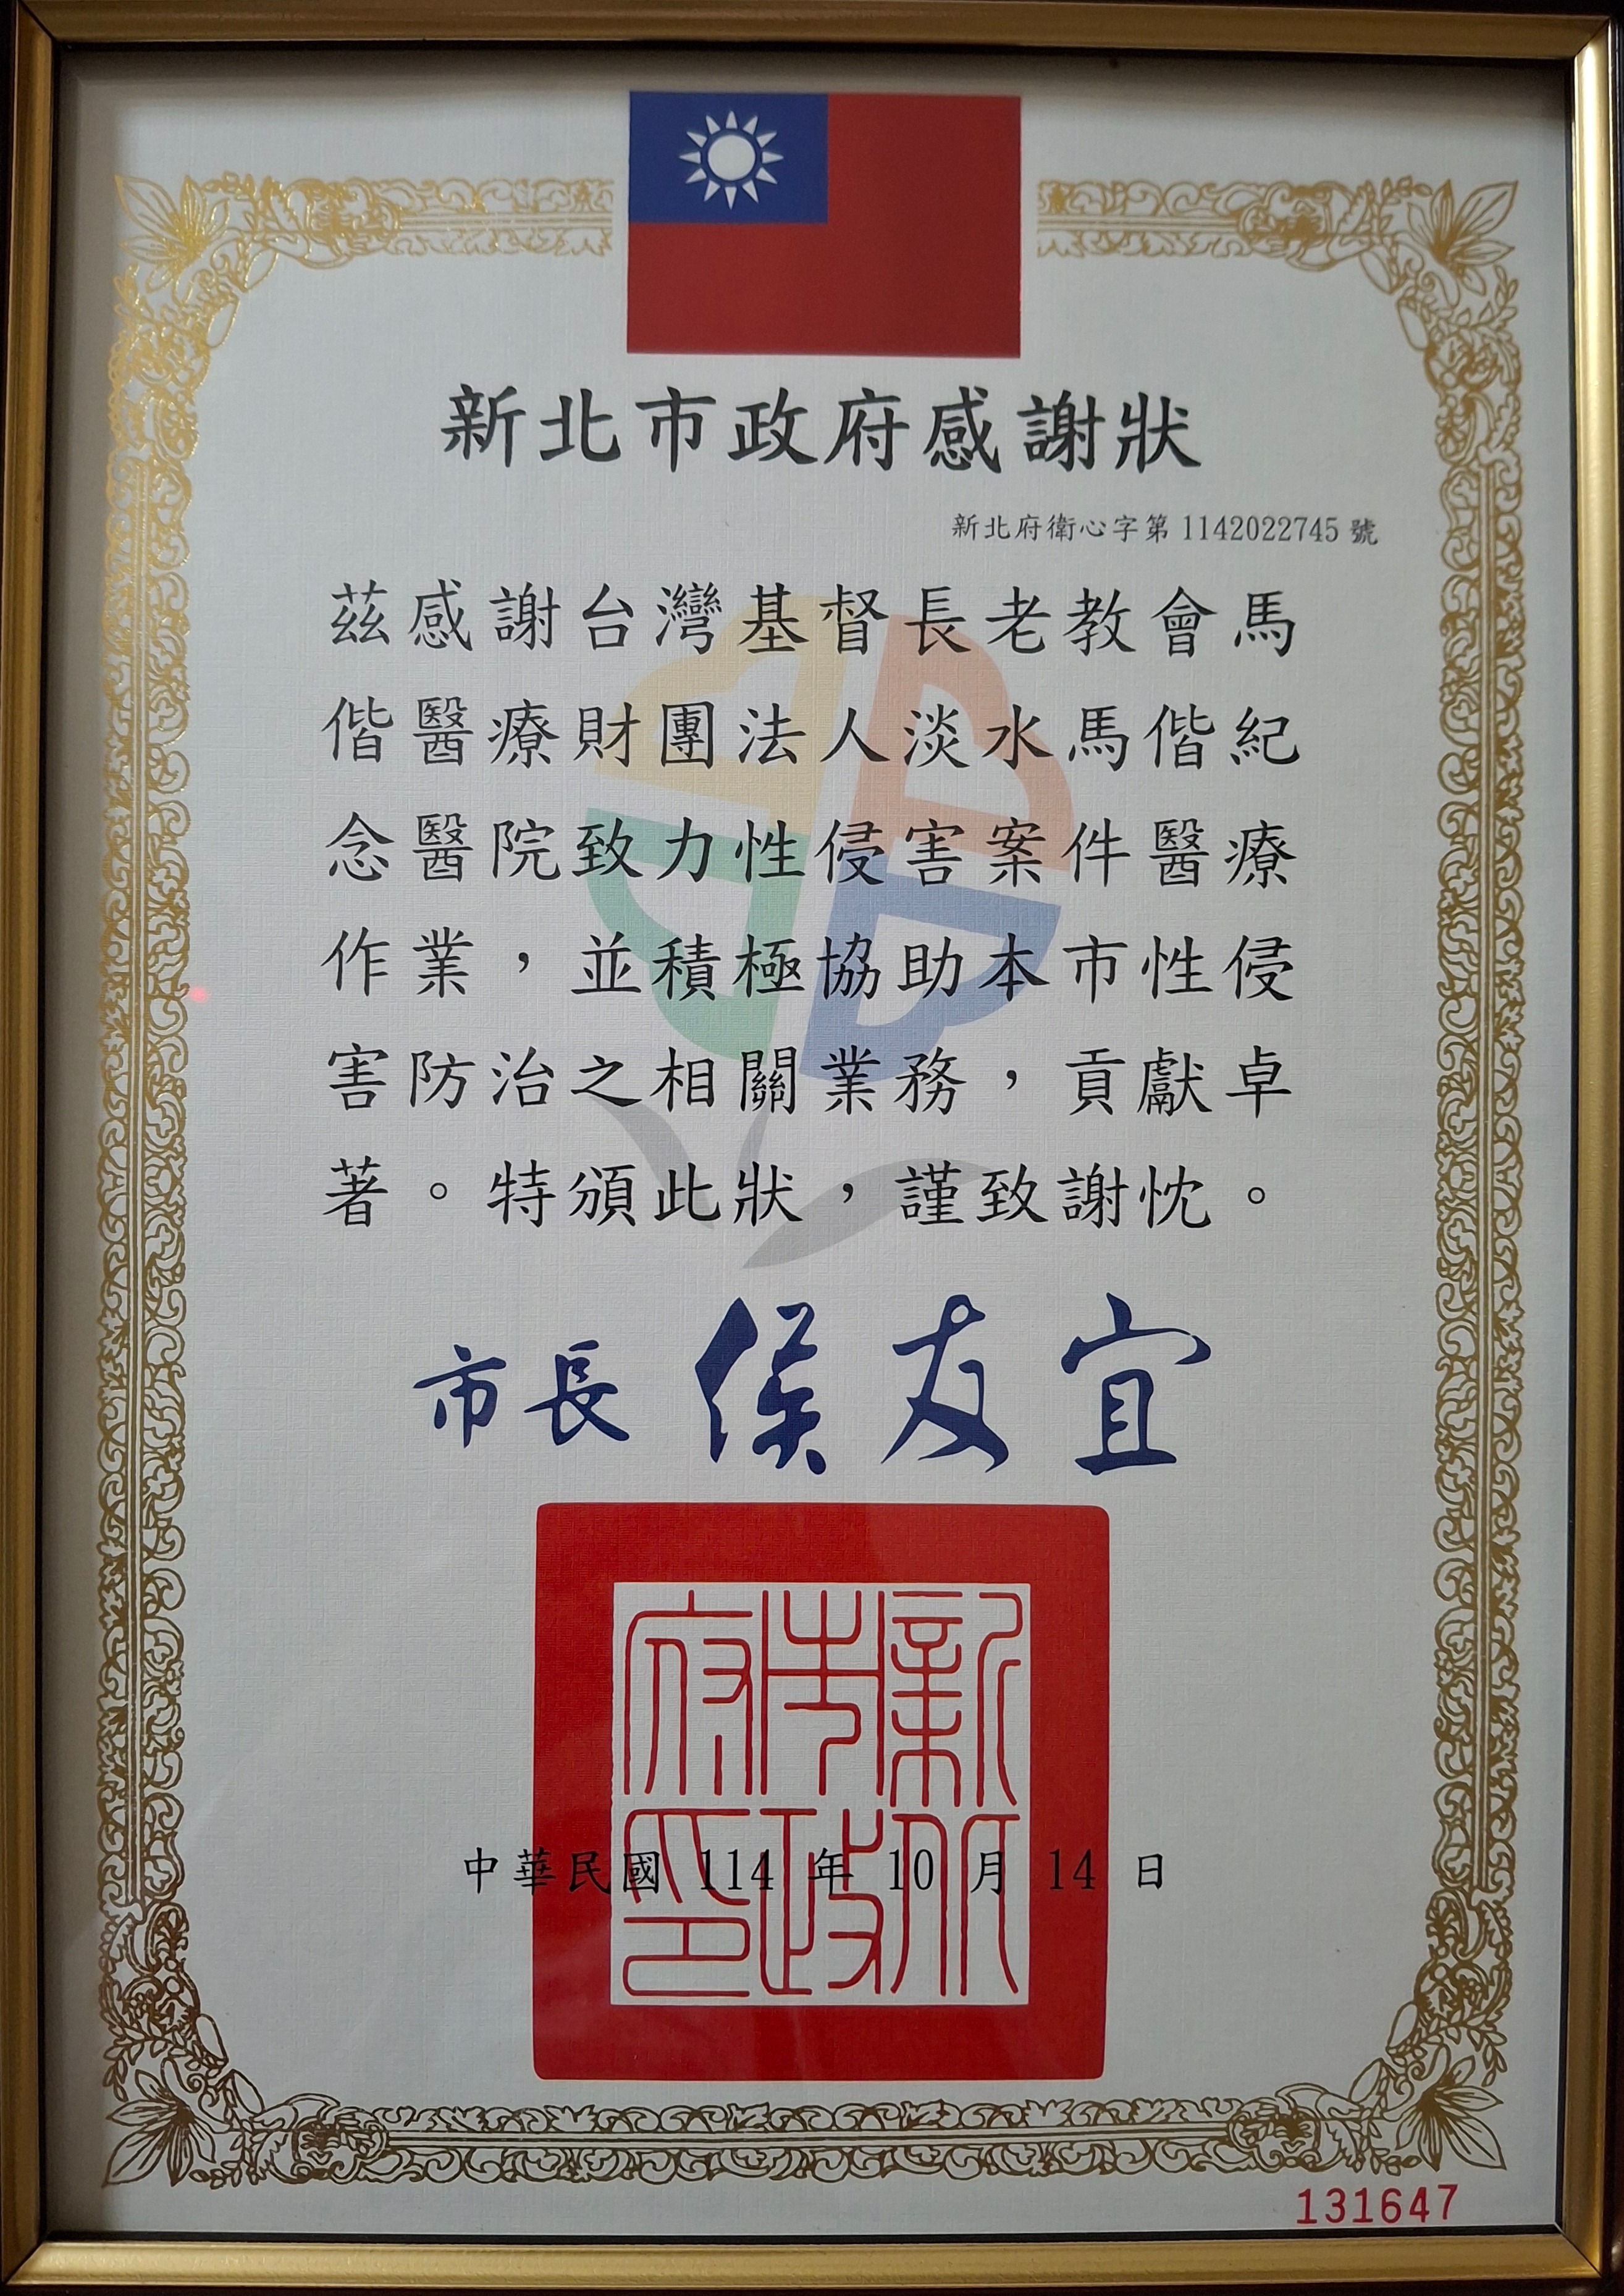 新北市政府感謝狀
新北府衛心字第1142022745號
茲感謝台灣基督長老教會馬
偕醫療財團法人淡水馬偕紀
念醫院致力性侵害案件醫療
作業，並積極協助本市性侵
害防治之相關業務，貢獻卓
著。特頒此狀，謹致謝忱。
市長 侯友宜
新北市政府印
中華民國 114 年 10 月 14 日
131647